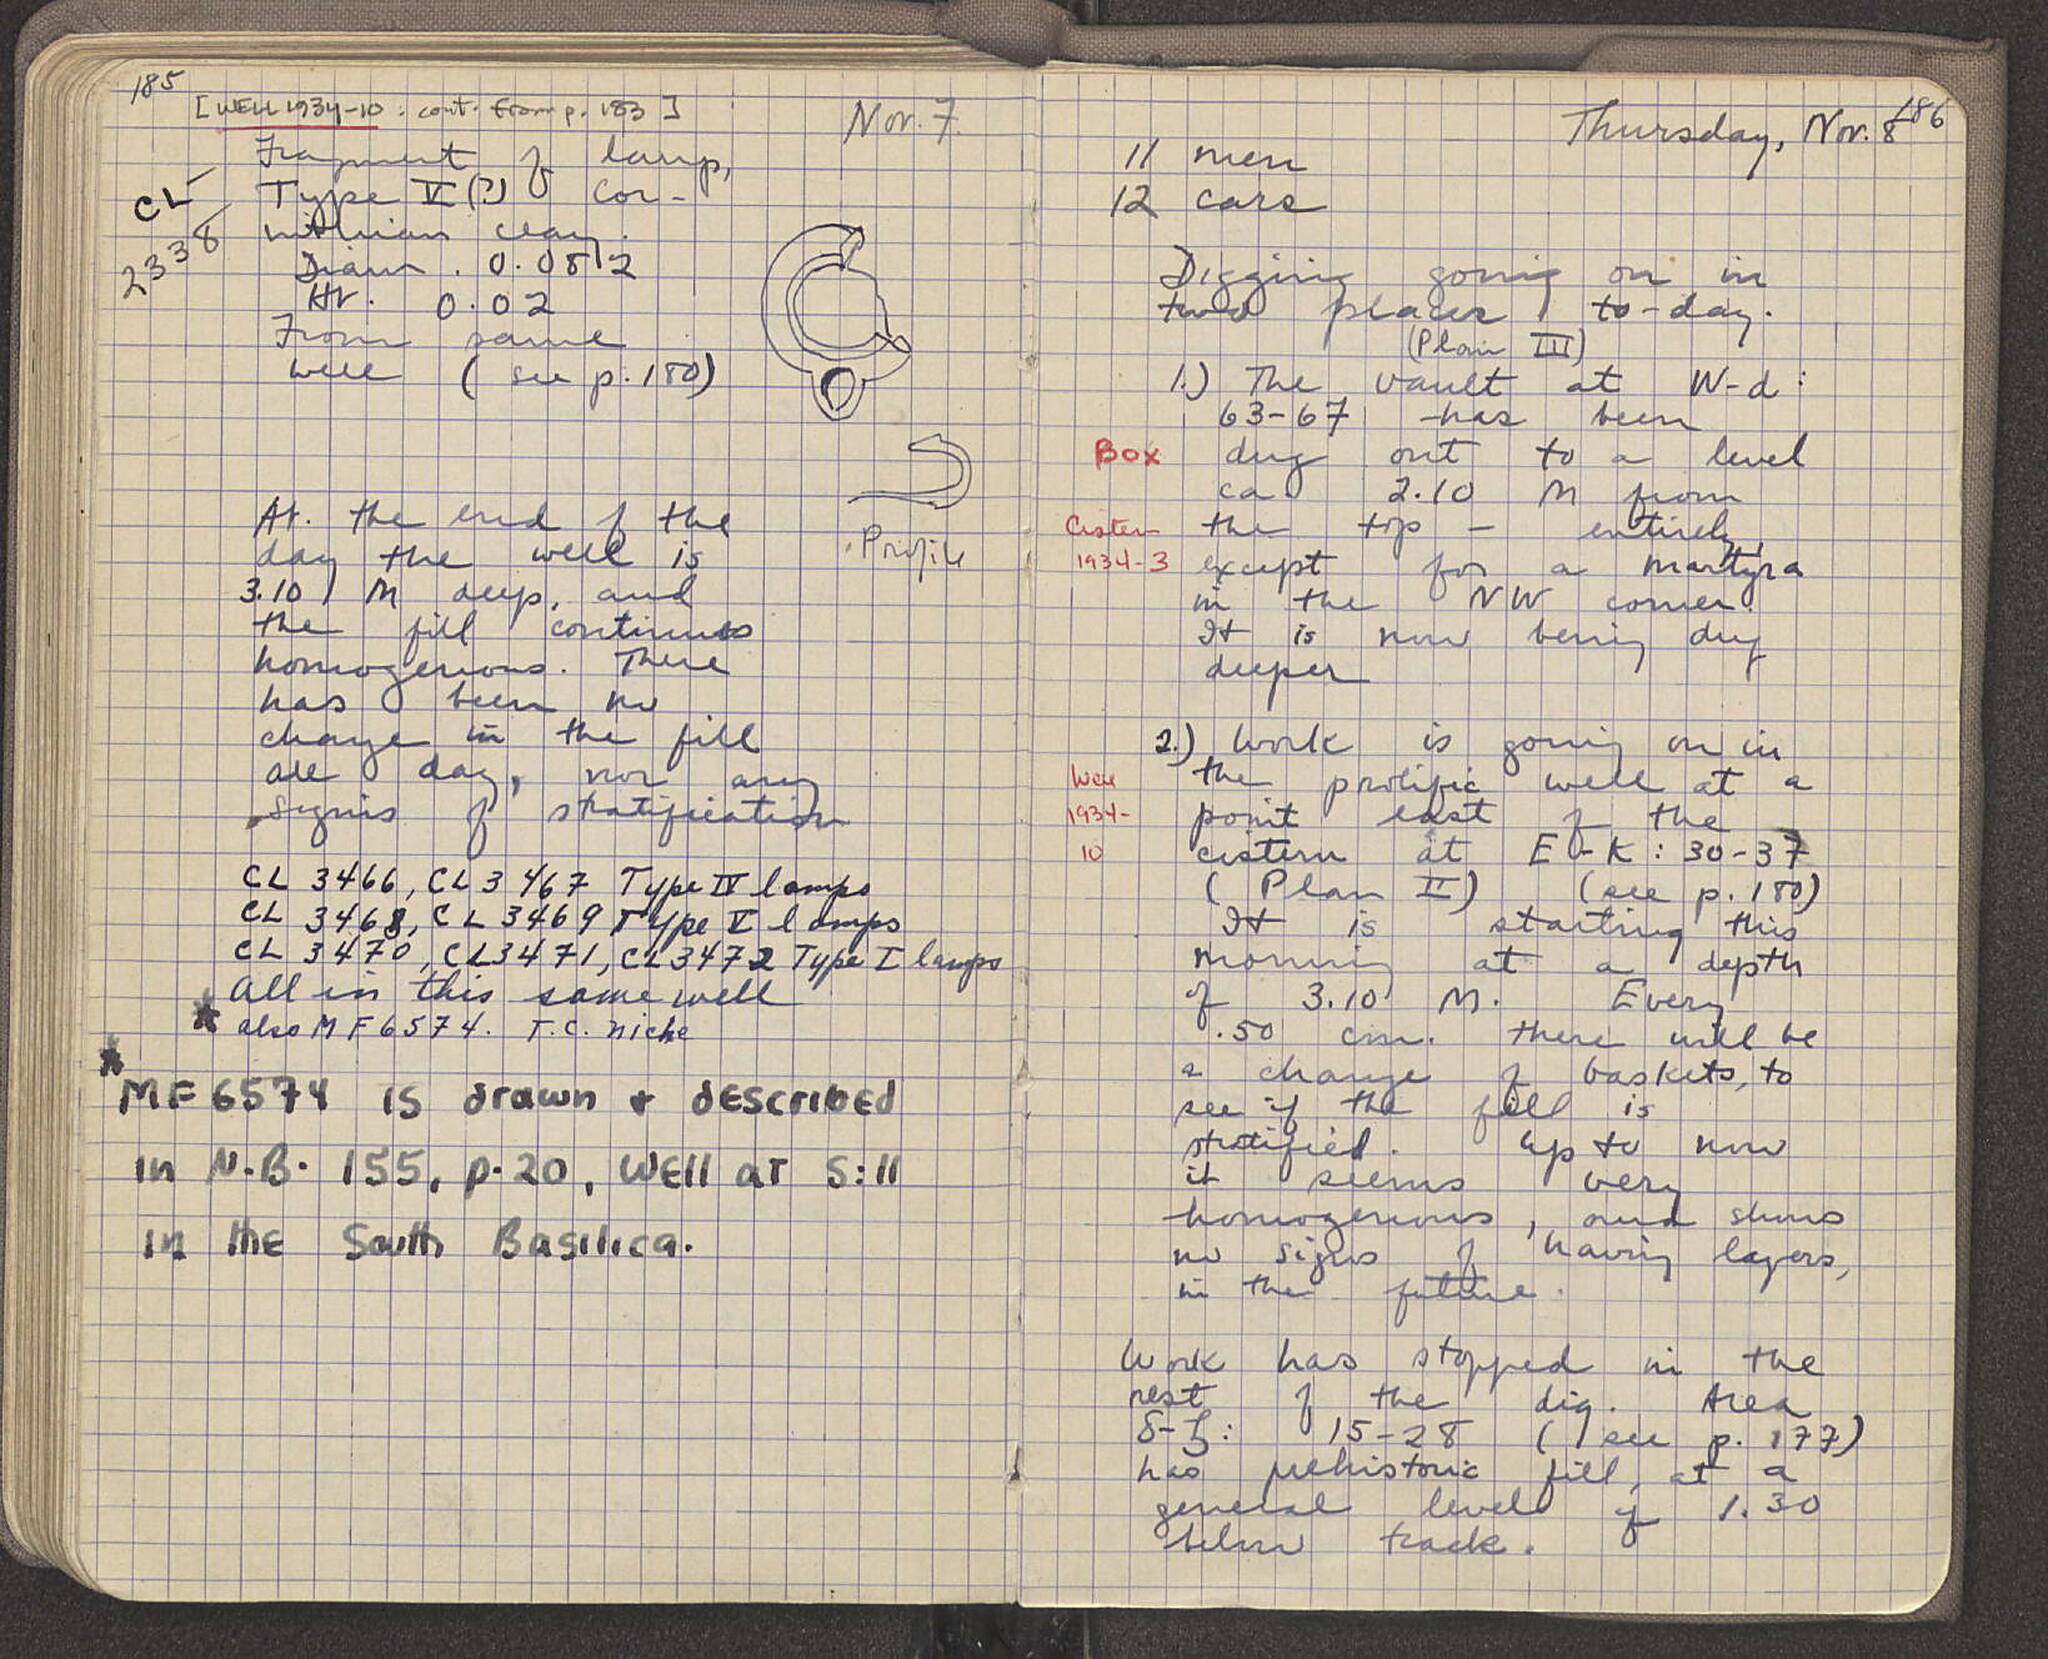 185
[WELL 1934-10 : cont. from p. 183]
Nov. 7.
Fragment of lamp,
CL-
Type V(?) of Cor-
inthian clay.
2338
Diam. 0.0812
Ht. 0.02
From same
well (see p. 180)
Profile
At the end of the
day the well is
3.10 M deep, and
the fill continues
homogenious. There
has been no
change in the fill
all day, nor any
signs of stratification
CL 3466, CL 3467 Type IV lamps
CL 3468, CL 3469 Type V lamps
CL 3470, CL3471, CL3472 Type I lamps
All in this same well
* also MF 6574. T.C. niche
* MF 6574 is drawn + described
in N.B. 155, p. 20, well at S:11
in the South Basilica.
186
Thursday, Nov. 8
11 men
12 cars
Digging going on in
two places to-day.
(Plan III)
1.) The vault at W-d:
63-67 has been
Box
dug out to a level
ca 2.10 M from
Cistern
the top - entirely,
1934-3
except for a martyra
in the NW corner.
It is now being dug
deeper
2.) Work is going on in
Well
the prolific well at a
1934-
point east of the
10
cistern at E-K: 30-37
(Plan II) (see p. 180)
It is starting this
morning at a depth
of 3.10 M. Every
.50 cm. there will be
a change of baskets, to
see if the fill is
stratified. Up to now
it seems very
homogenious, and shows
no signs of having layers,
in the future.
Work has stopped in the
rest of the dig. Area
δ-ζ: 15-28 (see p. 177)
has prehistoric fill, at a
general level of 1.30
below track.